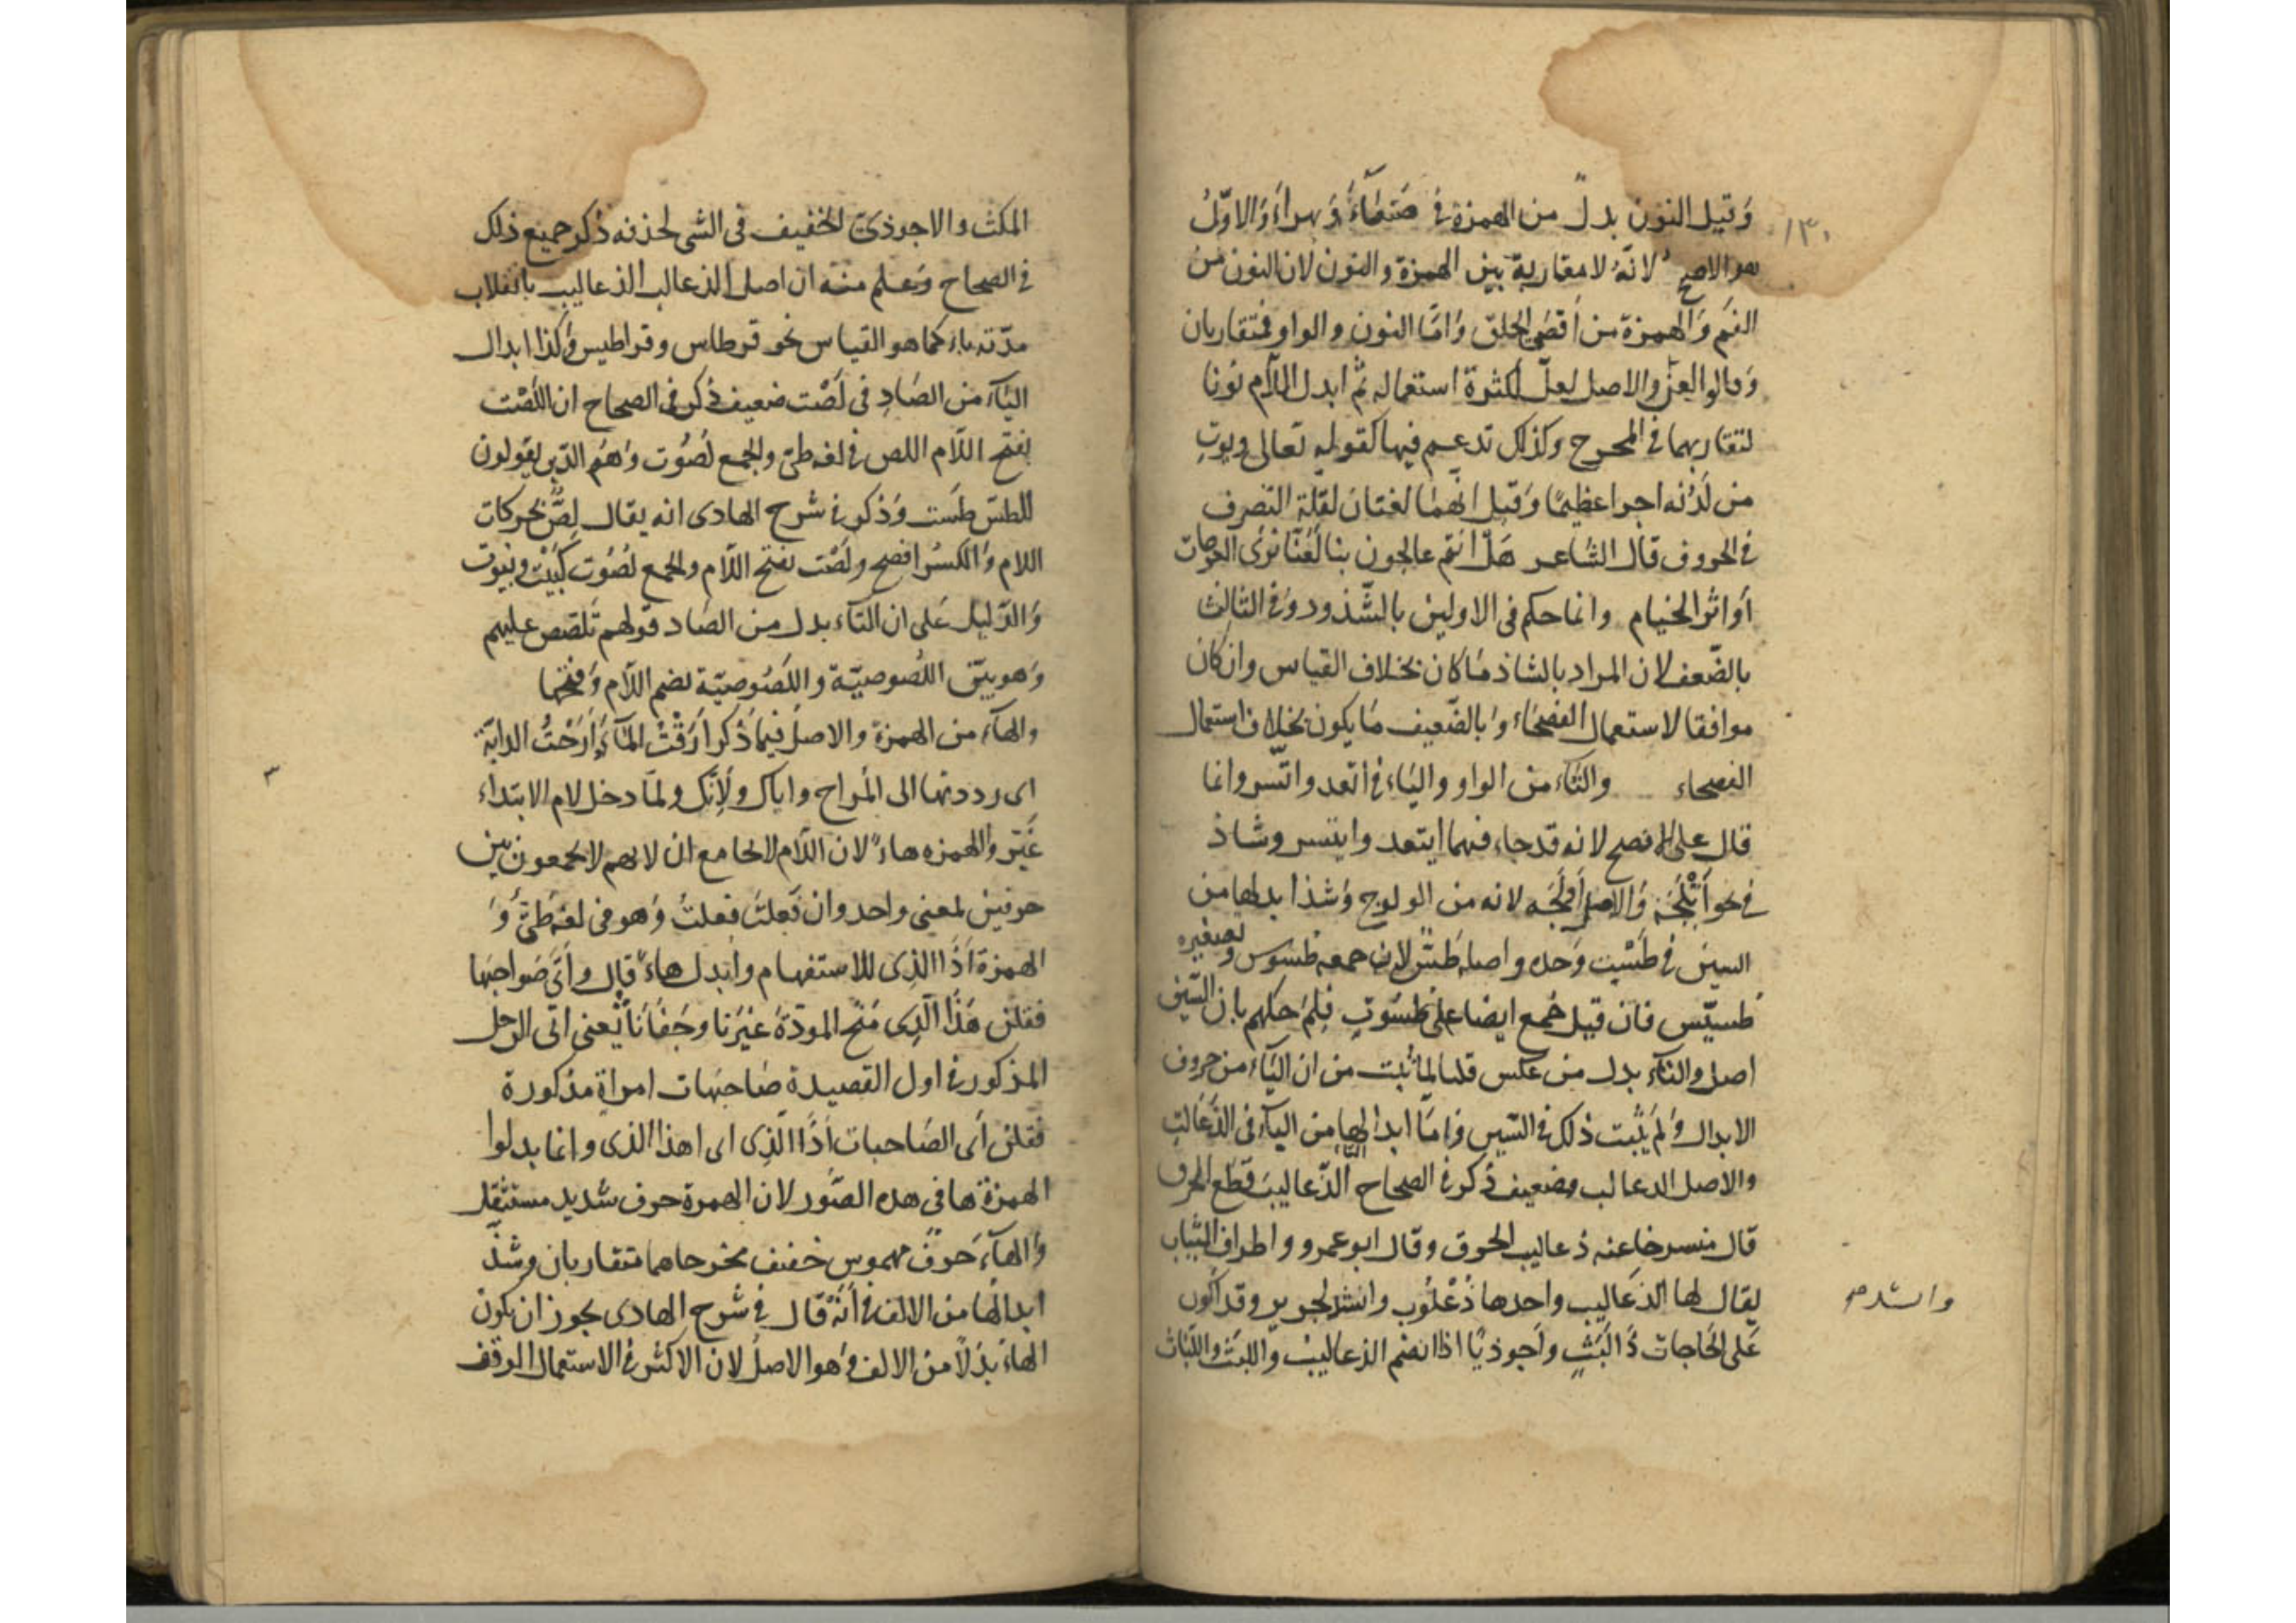 وَقيل النون بدل من الهمزة في صَنعاءَ وَبهراءَ وَالاوّلُ
هو الاصح لانّهُ لا مقاربة بين الهمزة والنون لان النون من
الفَم وَالهمزة من اَقصَى الحلق وَامّا النون والواو فمتقاربان
وَقالوا لعنّ والاصل لعلّ لكثرة استعماله ثم ابدل اللاّم نونا
لتقاربهما في المخرج وكذلك تدغم فيها كقوله تعالى ويوتِ
من لَدُنه اجرا عظيمًا وَقيل انّهما لغتان لقلّة التصرف
في الحروف قال الشاعر هَل انتم عالجون بنا لَعَنّا نرَى العرصات
اَو اثر الخيام وانما حكم في الاولين بالشّذوذ وَفي الثالث
بالضّعف لان المراد بالشاذ مَا كان بخلاف القياس وان كان
موافقا لاستعمال الفصحَاء وَبالضّعيف مَا يكون بخلاف استعمال
الفصحاء والتاء من الواو واليَاء في اتّعد واتّسر وانما
قال على الافصح لانه قد جاء فيهما ايتعد وايتسر وشاذ
في نحو اَتْلَجَهُ وَالاصل اَوْلَجَه لانه من الولوج وَشذ ابدالها من
السين في طَسْتٍ وَحده واصله طَسّ لان جمعه طسوس وتصغيره
طسيّس فان قيل جُمع ايضا على طسُوتٍ فلِمَ حكمتم بان السّين
اصل والتاء بدل من عكس قلنا لما ثبت من ان التاء من حروف
الابدال وَلم يَثبت ذلك في السّين وَامّا ابدالها من الباء في الذّعَالتِ
والاصل الذعالب فضعيف ذُكر في الصحاح الذّعاليبَ قطَع الخرق
قال منسرحا عنه ذعاليب الخرق وقال ابو عمرو واطراف الثياب
يقال لها الذعَاليب واحدها ذُعْلُوب وانشد لجرير وقد اكون
عَلى الحَاجات ذَا لَبَثٍ واَحوذيًّا اذا انضم الذعاليبُ وَاللبَث وَاللبَاث
١٣٠
وانشد صح
المكث والاحوذيّ الخفيف في الشي لحذقه ذكر جميع ذلك
في الصحاح وَعلم منه ان اصل الذعالب الذعاليب بانقلاب
مدّته ياءً كما هو القياس نحو قرطاس وقراطيس وَكذا ابدال
التاءَ من الصَاد في لَصْت ضعيف ذُكر في الصحاح ان اللَصْت
بفتح اللاّم اللص في لغه طيّ والجمع لُصُوت وَهُم الذين يقولون
للطسّ طَست وَذكر في شرح الهادى انه يقال لِصّ بحركات
اللام وَالكسرُ افصح ولَصْت بفتح اللاّم والجمع لُصُوت كبَيْت وبيُوت
وَالدّليل عَلى ان التاء بدل من الصَاد قولهم تَلَصّص عليهم
وَهو بيّن اللُصوصيّة واللَصُوصيّة بضم اللاّم وَفتحها
والهاءَ من الهمزة والاصل فيما ذكر اَرَقْتُ المَاءَ وَاَرَحْتُ الدابّة
اى رددتها الى المُراح واياك ولاِنّك ولمَا دخل لام الابتداء
غيّر والهمزه هاءً لان اللاّم لا تجامع ان لانهم لا يجمعون بين
حرفين لمعنى واحد وان فَعلتَ فعلتُ وَهو في لغة طيّ وَ
الهمزة اَذَا الذِى للاستفهام واُبدل هاءً قال واَتى صَواحبَها
فقلن هَذَا الّذِى مَنَح المودّة غيْرَنا وجَفَانَا يعنى اتى الرجل
المذكور في اول القصيدة صَاحبَات امراة مذكورة
فقلن اَى الصَاحبات اَذَا الّذِى اى اهذا الذى وانما بدلوا
الهمزة ها في هذه الصّور لان الهمزة حرف شديد مستثقل
وَالهاءَ حَرفٌ مهموس خفيف مخرجاهما متقاربان وشذّ
ابدالُها من الالف في اَنَهْ قال في شرح الهادى يجوز ان يكون
الهاءُ بدَلاً منَ الالف وَهو الاصلُ لان الاكثرَ في الاستعمال الوقف
٣